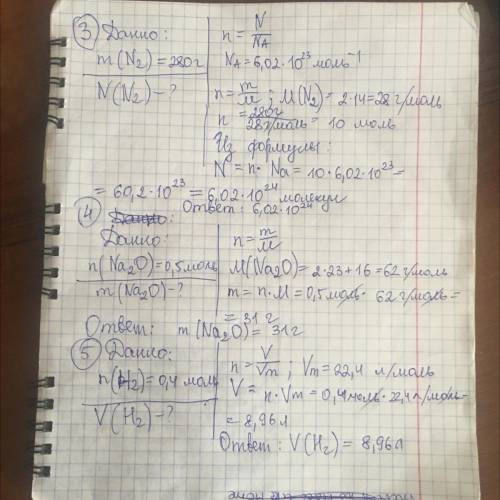 ③ Дано:
n = N/NA
m(N2) = 280г
NA = 6,02·10²³ моль⁻¹
N(N2) - ?
n = m/M; M(N2) = 2·14 = 28 г/моль
n = 280г/28г/моль = 10 моль
Из формулы:
N = n· Na = 10·6,02·10²³ =
= 60,2·10²³ = 6,02·10²⁴ молекул
Ответ: 6,02·10²⁴
④ Дано:
Дано:
n = m/M
n(Na2O) = 0,5 моль
M(Na2O) = 2·23 + 16 = 62 г/моль
m(Na2O) - ?
m = n·M = 0,5 моль · 62 г/моль =
= 31 г
Ответ: m(Na2O) = 31 г
⑤ Дано:
n = V/Vm; Vm = 22,4 л/моль
n(H2) = 0,4 моль
V = n·Vm = 0,4 моль · 22,4 л/моль =
V(H2) - ?
= 8,96 л
Ответ: V(H2) = 8,96 л